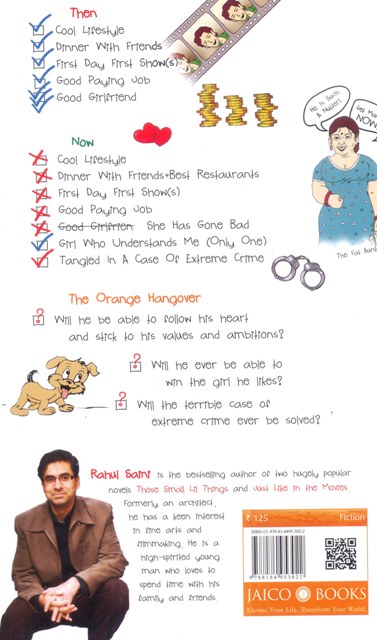 Then
Cool Lifestyle
Dinner With Friends
First Day First Show(s)
Good Paying Job
Good Girlfriend
He Is Such
A Nailer!
Now
Cool Lifestyle
Dinner With Friends+Best Restaurants
First Day First Show(s)
Good Paying Job
Good Girlfrien She Has Gone Bad
Girl Who Understands Me (Only One)
Tangled In A Case Of Extreme Crime
The Orange Hangover
? Will he be able to follow his heart
and stick to his values and ambitions?
? Will he ever be able to
win the girl he likes?
? Will the terrible case of
extreme crime ever be solved?
Rahul Saini is the bestselling author of two hugely popular
novels Those Small Lil Things and Just Like in the Movies.
Formerly an architect,
he has a keen interest
in fine arts and
filmmaking. He is a
high-spirited young
man who loves to
spend time with his
family and friends.
₹ 125 Fiction
9788184953022
JAICO BOOKS
Elevate Your Life. Transform Your World.